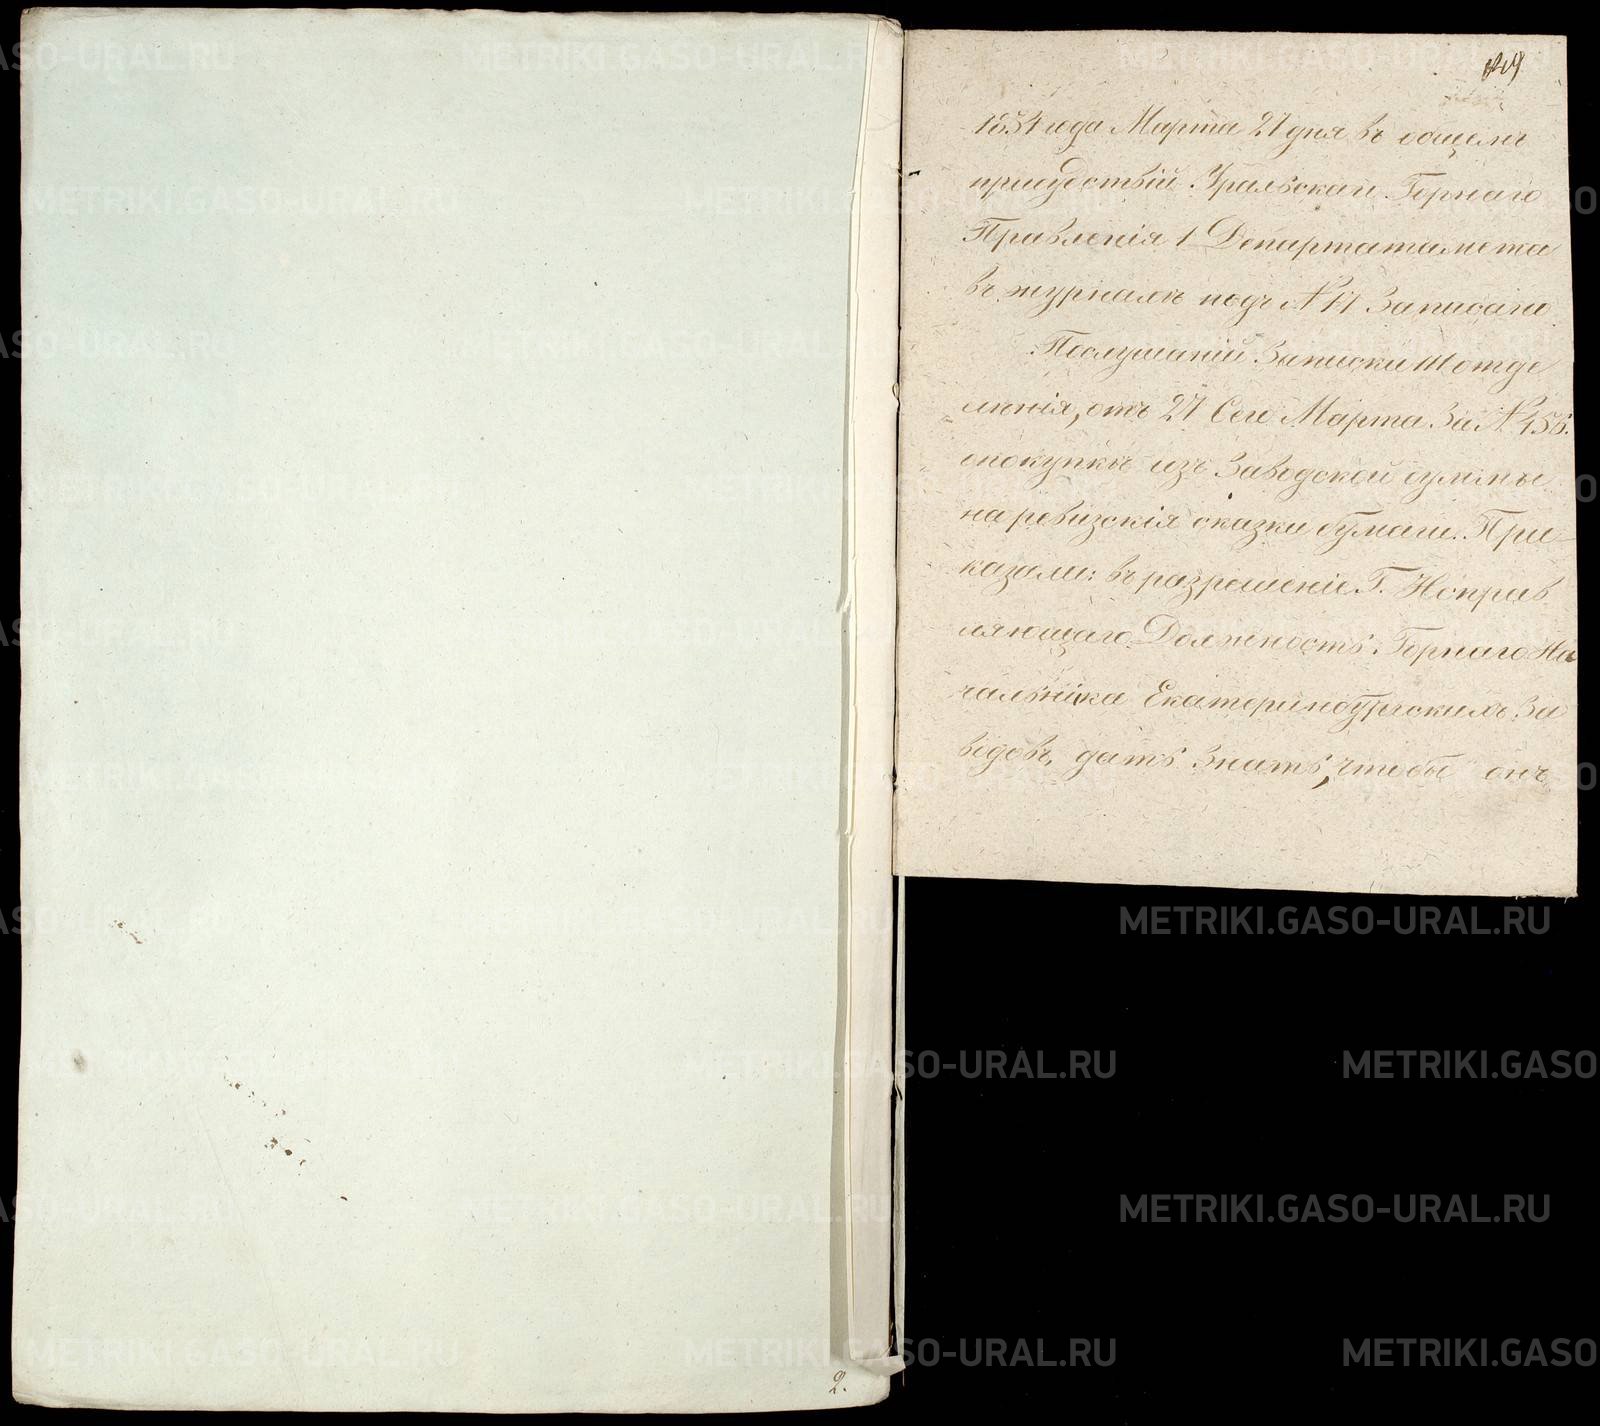 1834 года Марта 27 дня въ общемъ
присудствіи Уральскаи Горнаго
Правленія 1 Департатамета
въ журналѣ подъ № 11 Записано
Послушаніи Записки III отде
ленія, отъ 27 Сего Марта За № 156.
опокупкѣ изъ Заводской суммы
на ревизскія сказки бумаги. При-
казали: въ разрешеніе Г. Исправ
ляющаго Должность Горнаго На
чальника Екатеринбургскихъ За
водовъ, дать Знать, чтобы онъ
2.
METRIKI.GASO-URAL.RU